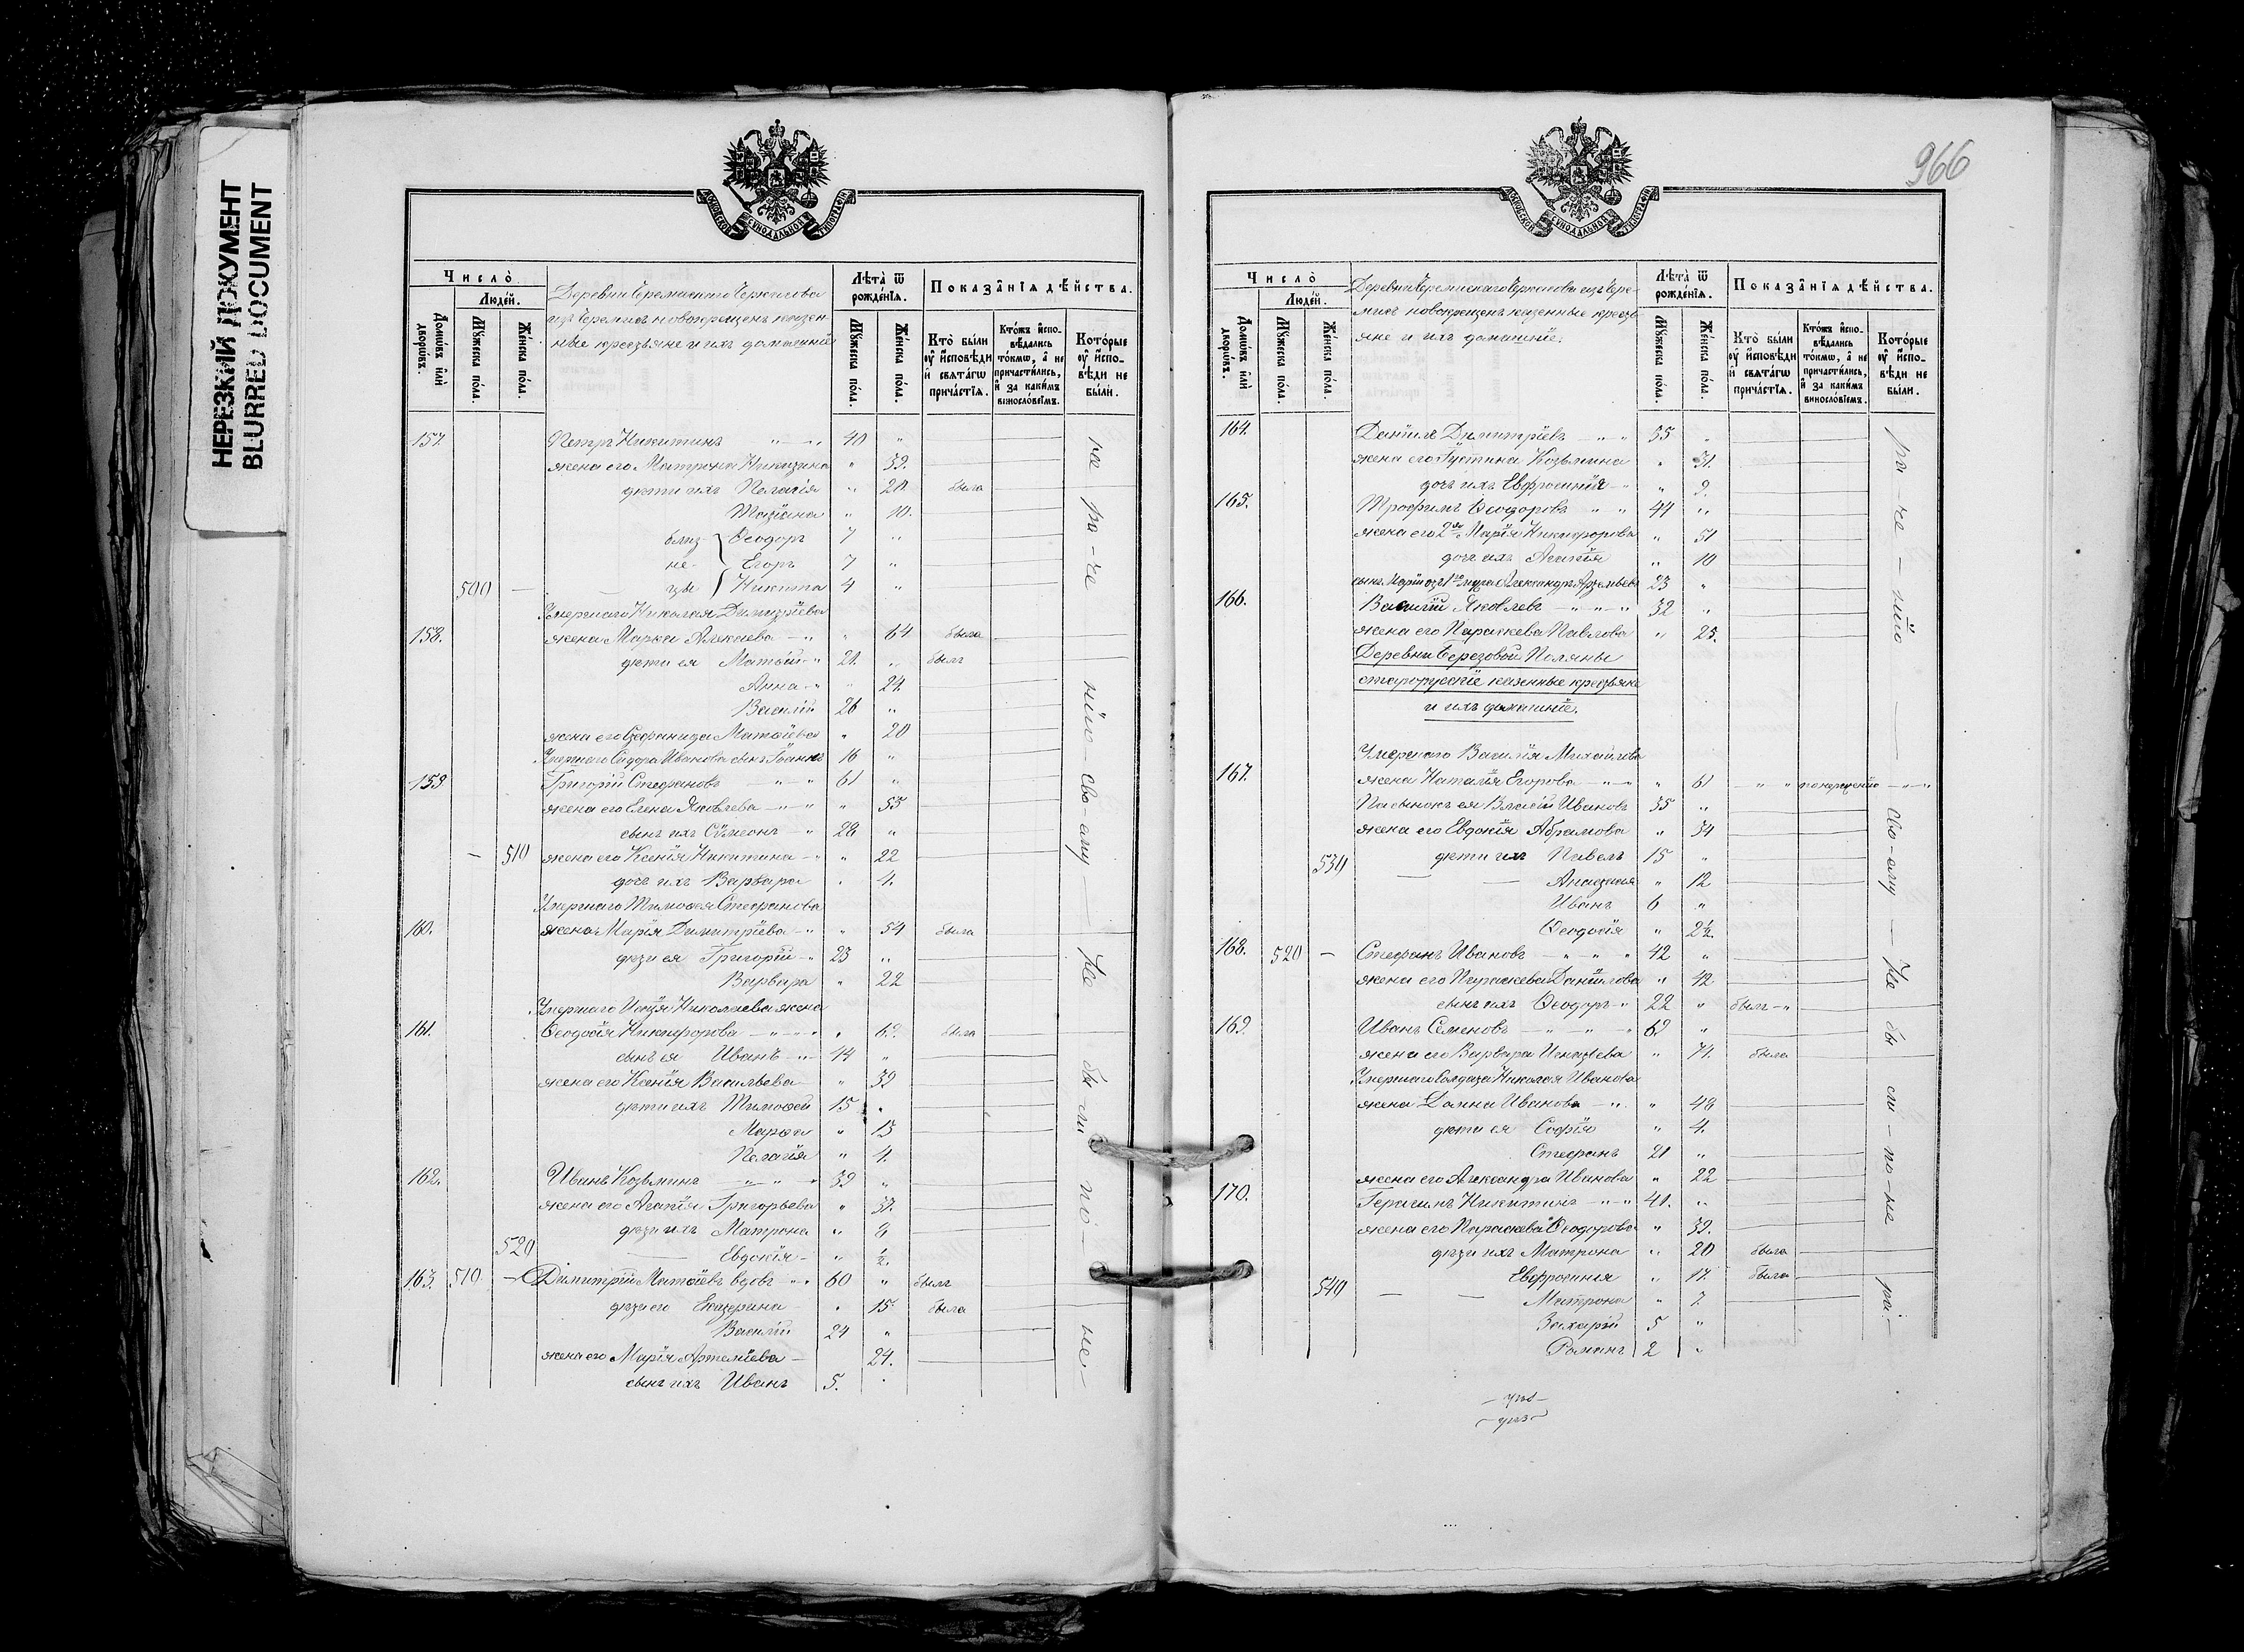 НЕРЕЗКИЙ ДОКУМЕНТ
BLURRED DOCUMENT
МОСКОВСКОЙ СѴНОДАЛЬНОЙ ТИПОГРАФІИ
Число̀
Людей.
Домѡвъ и҆лѝ дворѡвъ.
Мꙋжеска пола.
Женска пола.
Деревни Черемискаго
изъ Черемисъ новокрещенъ казен-
ные крестьяне и ихъ домашніе
Лѣта̀ ѿ рожденїѧ.
Мꙋжеска пола.
Женска пола.
Показанїѧ дѣйства.
Кто̀ были оу҆ и҆сповѣди и҆ свѧтагѡ причастїѧ.
Ктожъ и҆спо- вѣдались токмѡ, а҆ не причастились, и҆ за какимъ винословїемъ.
Которые оу҆ и҆спо- вѣди не были.
157. Петръ Никитинъ " — " 40 "
жена его Матрона " 39.
дѣти ихъ Пелагія " 20 была
Татіана " 10.
близ- Ѳеодоръ 7 "
не- Егоръ 7 "
500 — цы Никита 4 "
Умершаго Николая Димитріева
158. жена Марѳа — " " 64 была
дѣти ея Матѳій " 21. " былъ
Анна " " 24.
Василій 26 "
жена его Стефанида Матѳіева " 20
Умершаго Сидора Иванова сынъ Іоаннъ 16 "
159 Григорій Стефановъ " " 61 "
жена его Елена Яковлева — " " " 55
сынъ ихъ Сѵмеонъ — " 28 "
— 510 жена его Ксенія Никитина — " " 22
дочь ихъ Варвара " 4.
Умершаго Тимоѳея Стефанова
160. жена Марія Димитріева — " " 54 была
дѣти ея Григорій — " 23 "
Варвара " 22
Умершаго Николаева жена
161. Ѳеодосія Никифорова — " — " " 62. была
сынъ ея Иванъ — " — 44 "
жена его Ксенія Васильева " 39
дѣти ихъ Тимоѳей 15 "
Марѳа " 13
Пелагія " 4.
162. Иванъ Козьминъ — " — " 39 "
жена его Агапія Григорьева " 37.
дѣти ихъ Матрона " 8
520 — Евдокія — " ½.
163. 510 — Димитрій Матѳіевъ вдовъ " " 60 " былъ
дѣти его Екатерина — " 15 была
Василій 24 "
жена его Марія Артеміева — 24.
сынъ ихъ Иванъ 5. "
ра-че-нію-сво-ему — Не бы-ли по не-
966
МОСКОВСКОЙ СѴНОДАЛЬНОЙ ТИПОГРАФІИ
Число̀
Людей.
Домѡвъ и҆лѝ дворѡвъ.
Мꙋжеска пола.
Женска пола.
Деревни Черемискаго изъ Чере-
мисъ новокрещенъ казенные кресть
яне и ихъ домашніе.
Лѣта̀ ѿ рожденїѧ.
Мꙋжеска пола.
Женска пола.
Показанїѧ дѣйства.
Кто̀ были оу҆ и҆сповѣди и҆ свѧтагѡ причастїѧ.
Ктожъ и҆спо- вѣдались токмѡ, а҆ не причастились, и҆ за какимъ винословїемъ.
Которые оу҆ и҆спо- вѣди не были.
164. Даніилъ Димитріевъ — " " 35 "
жена его Іустина Козьмина " 31.
дочь ихъ Евфросинія — " " 9.
165. Трофимъ Ѳеодоровъ " " 44 "
жена его 2я Марія Никифорова " 51
дочь ихъ Агапія " 10
сынъ Маріи отъ 1го мужа Александръ Артемьевъ 23 "
166. Василій Яковлевъ — " — " — " 32 "
жена его Параскева Павлова " 25.
Деревни Березовой Поляны
старорусскіе казенные крестьяне
и ихъ домашніе.
Умершаго Василія Михайлова
167. жена Наталія Егорова — " — " " 61 — " " по нераченію — " — "
Пасынокъ ея Власій Ивановъ 35 "
жена его Евдокія Абрамова " 34
дѣти ихъ Павелъ 15 "
530 — — Анастасія " 12
Иванъ 6 "
Ѳеодосія " 2½.
168. 520 — Стефанъ Ивановъ — " " " 42 "
жена его Параскева Даніилова " 42
сынъ ихъ Ѳеодоръ — " 22 " былъ — "
169. Иванъ Семеновъ — " — " — " 69 "
жена его Варвара Игнатіева " 71. была
Умершаго Солдата Николая Иванова
жена Домна Иванова — " " 48
дѣти ея Софія " 4.
Стефанъ 21 "
жена его Александра Иванова " 22
170. Герасимъ Никитинъ — " — " 41. "
жена его Параскева Ѳеодорова " 39.
дѣти ихъ Матрона " 20 была
Евфросинія " 17. была
540 — — Матрона " 7
Захарій 5 "
Романъ 2 "
ра-че-нію — сво-ему — Не бы-ли-по-не ра-